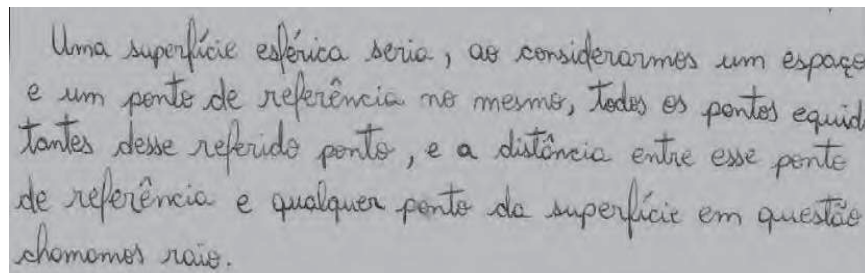 Uma superfície esférica seria, ao considerarmos um espaço
e um ponto de referência no mesmo, todos os pontos equid
tantes desse referido ponto, e a distância entre esse ponto
de referência e qualquer ponto da superfície em questão
chamamos raio.